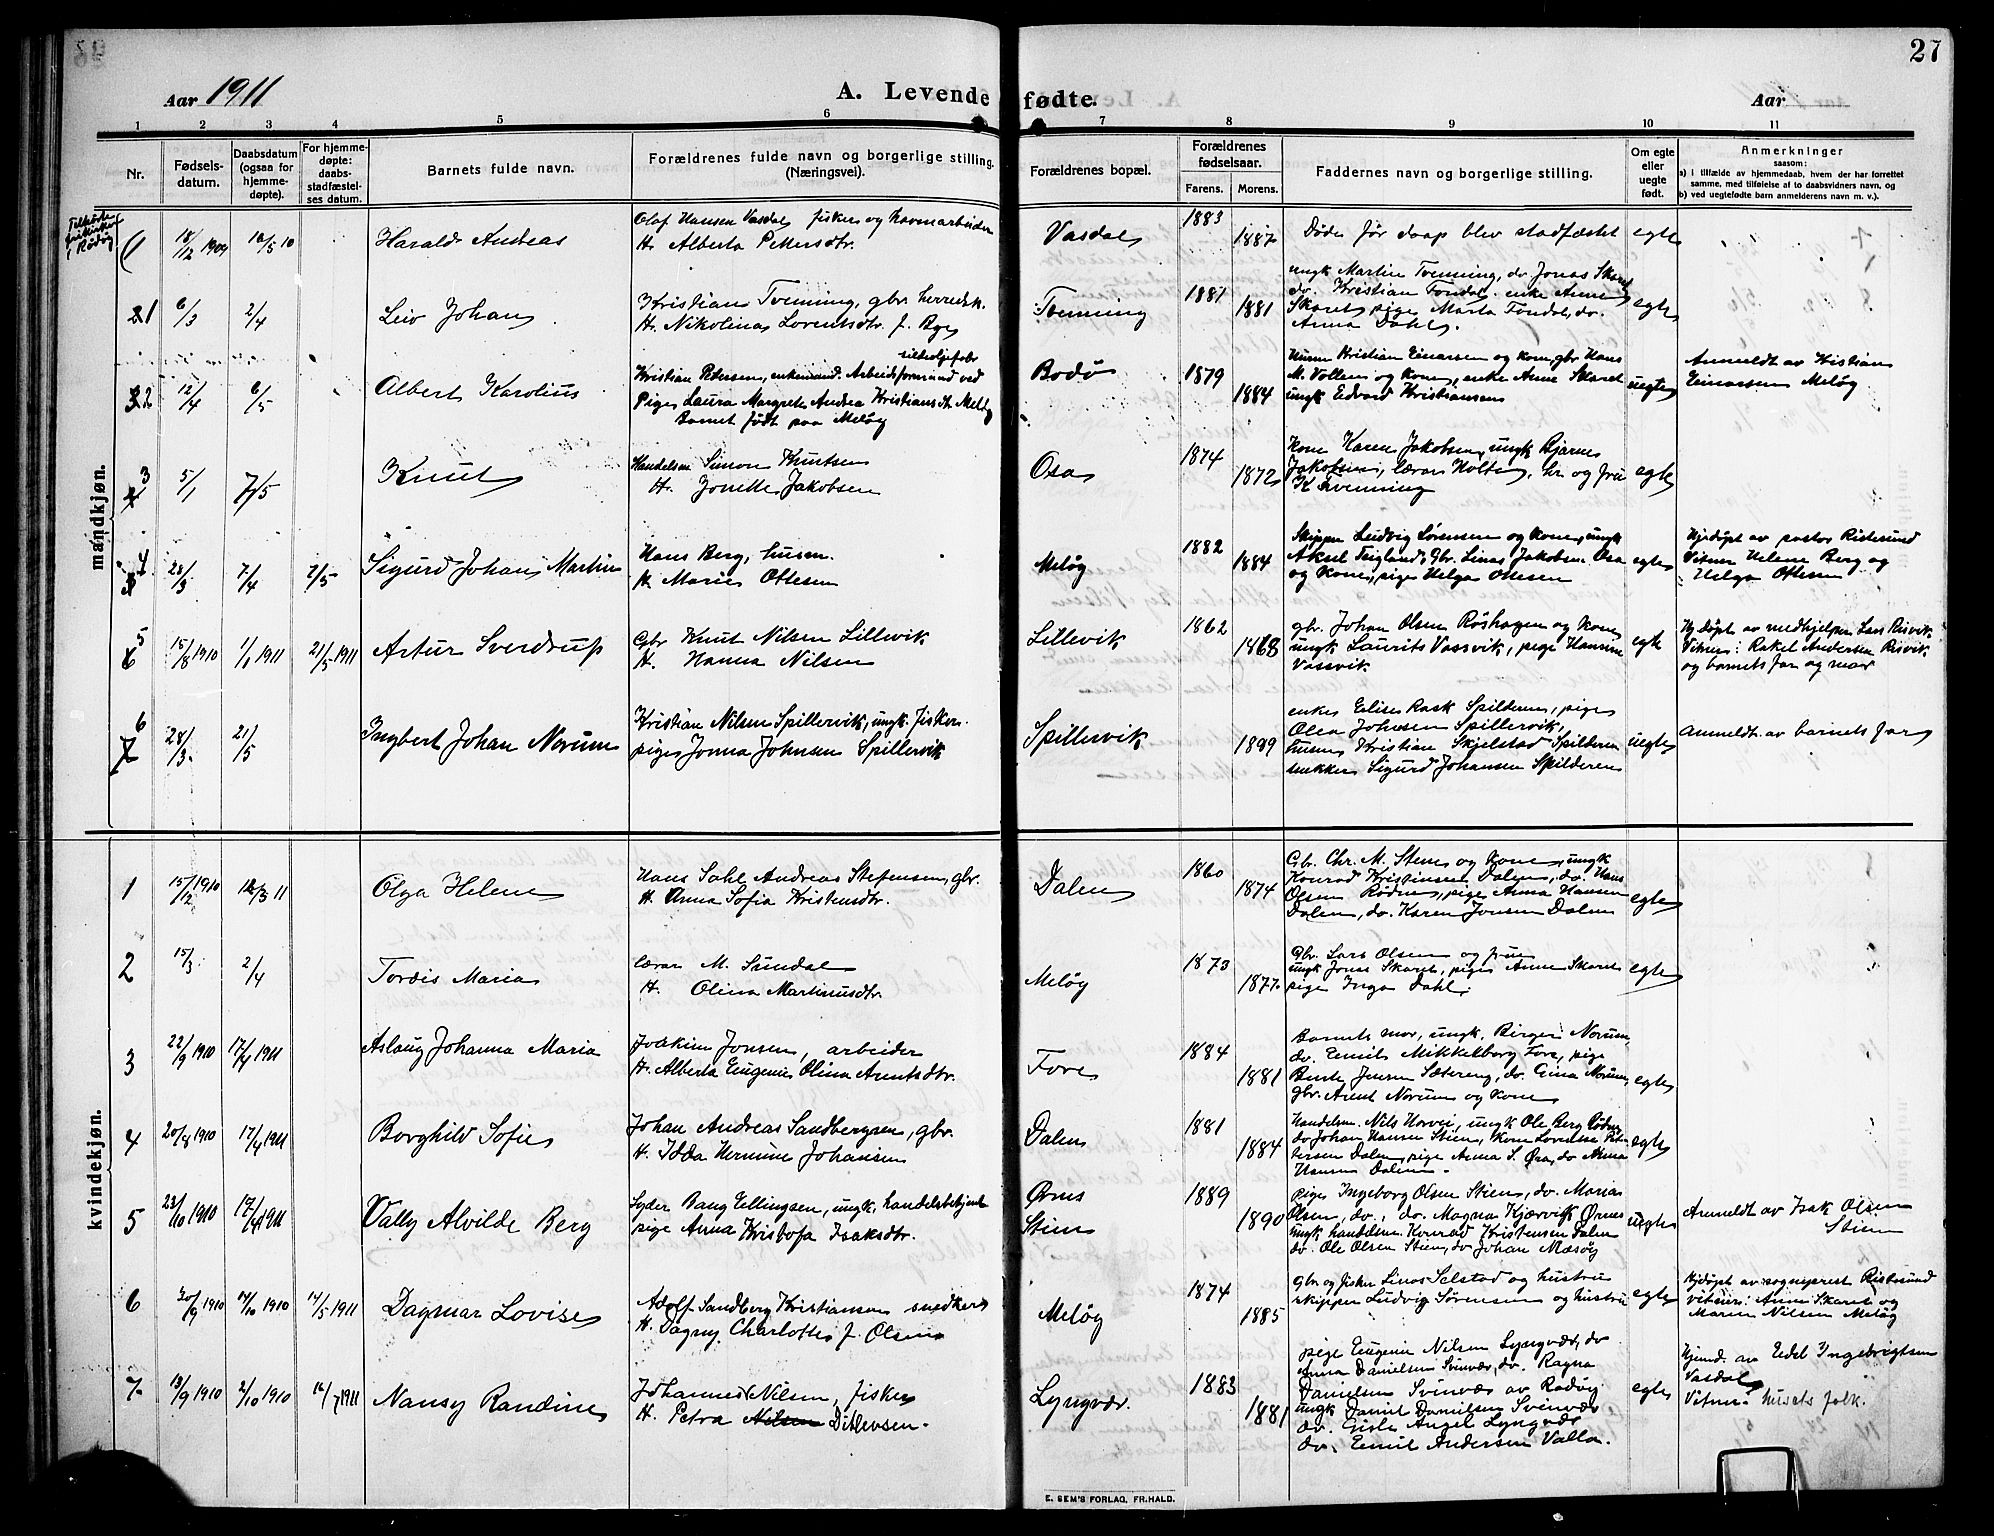 27
Aar 1911
A. Levende fødte.
Aar
1 2 3 4 5 6 7 8 9 10 11
Nr.
Fødsels-
datum.
Daabsdatum
(ogsaa for
hjemme-
døpte).
For hjemme-
døpte:
daabs-
stadfæstel-
ses datum.
Barnets fulde navn.
Forældrenes fulde navn og borgerlige stilling.
(Næringsvei).
Forældrenes bopæl.
Forældrenes
fødselsaar.
Farens. Morens.
Faddernes navn og borgerlige stilling.
Om egte
eller
uegte
født.
Anmerkninger
saasom:
a) i tilfælde av hjemmedaab, hvem der har forrettet
samme, med tilføielse af to daabsvidners navn, og
b) ved uegtefødte barn anmelderens navn m. v.).
mandkjøn.
1
18/12 1909
Harald Andreas
Olaf Hansen Vasdal fisker og havnearbeider
H. Alberta Petersdtr.
Vasdal
1883
1887
Døde før daap blev stadfæstet
egte
1
6/3
2/4
Leiv Johan
Kristian Tvenning, gbr. herredsk.
H. Nikolina Lorentsdtr. f. Bye
Tvenning
1881
1881
ungk Martin Tvenning, do. Jonas Skaret
do. Kristian Fondal. enke Anne
Skaret pige Marta Fondal, do.
Anna Dahl.
egte
2
12/4
6/5
Albert Karolius
sildoljefabr
Kristian Petersen, enkemand. Arbeidsformand ved
Pige Laura Margrete Andrea Kristiansdtr Meløy
Barnet født paa Meløy
Bodø
1879
1884
Husm Kristian Einarsen og kone, gbr Hans
M. Vollen og kone, enke Anne Skaret
ungk Edvard Kristiansen
uegte
Anmeldt av Kristian
Einarsen Meløy
3
5/1
7/5
Knut
Handelsm Simon Knutsen
H. Jonette Jakobsen
Osa
1874
1872
Kone Karen Jakobsen, ungk Bjarne
Jakobsen, lærer Holte, hr. og fru
K Tvenning
egte
4
28/3
7/4
7/5
Sigurd Johan Martin
Hans Berg, husm.
H. Marie Ottesen
Meløy
1882
1884
Skipper Ludvig Sørensen og kone, ungk
Aksel Teigland, Gbr. Linas Jakobsen Osa
og kone, pige Helga Ottesen
egte
Hjdøpt av pastor Ridesund
Vitner Helene Berg og
Helga Ottesen
5
15/8 1910
1/1 1911
21/5 1911
Artur Sverdrup
Gbr Knut Nilsen Lillevik
H. Hanna Nilsen
Lillevik
1862
1868
gbr. Johan Olsen Røshagen og kone
ungk Laurits Vassvik, pige Hansine
Vassvik
egte
Hjdøpt av medhjelper Lars Risvik.
Vitner: Rakel Andersen Risvik
og barnets far og mor
6
28/3.
21/5
Ingbert Johan Norum
Kristian Nilsen Spillervik, ungk. fisker.
pige Jonna Johnsen Spillervik
Spillervik
1889
enke Elise Rask Spilderen, pige
Olea Johnsen Spillervik,
husm Kristian Skjelstad Spilderen
snekker Sigurd Johansen Spilderen
uegte
Anmeldt av barnets far
kvindekjøn.
1
15/12 1910
12/3 11
Olga Helene
Hans Dahl Andreas Stefensen, gbr.
H. Anna Sofia Kristensdtr.
Dalen
1860
1874
Gbr. Chr. M. Stien og kone, ungk
Konrad Kristensen Dalen, do. Hans
Olsen Rødne, pige Anna Hansen
Dalen, do. Karen Jonsen Dalen
egte
2
15/3.
2/4
Tordis Maria
Lærer M. Sundal
H. Olina Martinusdtr.
Meløy
1873
1877.
Gbr. Lars Olsen og frue
ungk Jonas Skaret, pige Anne Skaret
pige Inga Dahl.
egte
3
22/9 1910
17/4 1911
Aslaug Johanna Maria
Joakim Jonsen, arbeider
H. Alberta Eugenie Olina Arentsdtr.
Fore
1884
1881
Barnets mor, ungk. Birger Norum,
do. Emil Mikkelborg Fore, pige
Bente Jensen Sætereng, do. Gina Norum,
gbr. Arent Norum og kone
egte
4
20/8 1910
17/4 1911
Borghild Sofie
Johan Andreas Sandbergsen, gbr.
H. Idda Hermine Johansen
Dalen
1881
1884
Handelsm. Nils Horvei, ungk Ole Berg Rødne,
do Johan Hansen Stien, kone Lovense Pet-
tersen Dalen, pige Anna S. Øra, do Anna
Hansen Dalen.
egte
5
23/10 1910
17/4 1911
Vally Alvilde Berg
Syder Bang Ellingsen, ungk. handelsbetjent
pige Anna Kristofa Isaksdtr.
Ørnes
Stien
1889
1890
pige Ingeborg Olsen Stien, do. Maria
Olsen, do., do. Magna Kjærvik Ørnes
ungk handelsm. Konrad Kristensen Dalen
do. Ole Olsen Stien, do Johan Mæsøy
uegte
Anmeldt av Isak Olsen
Stien
6
30/9 1910
14/10 1910
14/5 1911
Dagmar Lovise
Adolf Sandberg Kristiansen snedker
H. Dagny Charlotte f. Olsen
Meløy
1874
1885
Gbr og fisker Linas Selstad og hustru
skipper Ludvig Sørensen og hustru
egte
Hjdøpt av sogneprest Ridesund
vitner: Anne Skaret og
Maren Nilsen Meløy
7
13/9 1910
2/10 1910
16/7 1911
Nansy Randine
Johannes Nilsen, fisker
H. Petra Nilsen Ditlevsen.
Lyngvær.
1883
1881
pige Eugenie Nilsen Lyngvær, do
Anna Danielsen Svinvær, do. Ragna
Danielsen Svinvær av Rødøy
ungk Daniel Danielsen Svinvær
do. Eisle Angel Lyngvær
do. Emil Andersen Valla.
egte
Hjemd. av Edel Ingebrigtsen
Vasdal
Vitner: husets folk.
E. SEM'S FORLAG, FR.HALD.